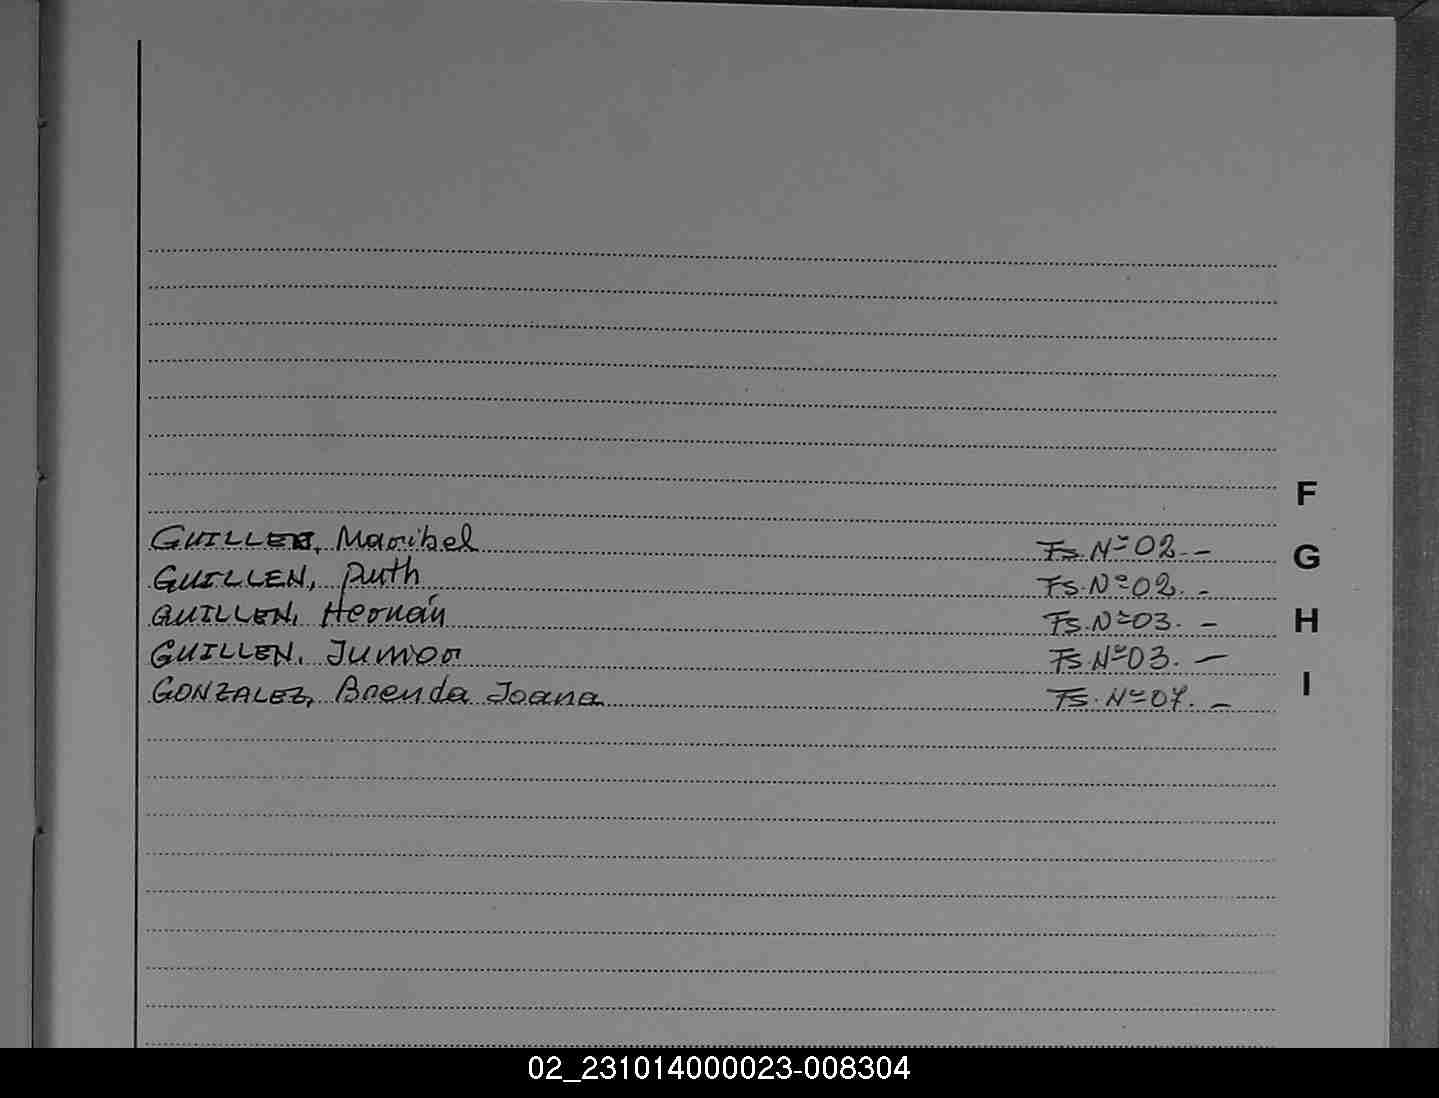 F
GUILLEN, Maribel Fs. Nº 02.-
G
GUILLEN, Ruth Fs. Nº 02.-
GUILLEN, Hernán Fs. Nº 03.-
H
GUILLEN, Junior Fs. Nº 03.-
GONZALEZ, Brenda Joana Fs. Nº 07.-
I
02_231014000023-008304